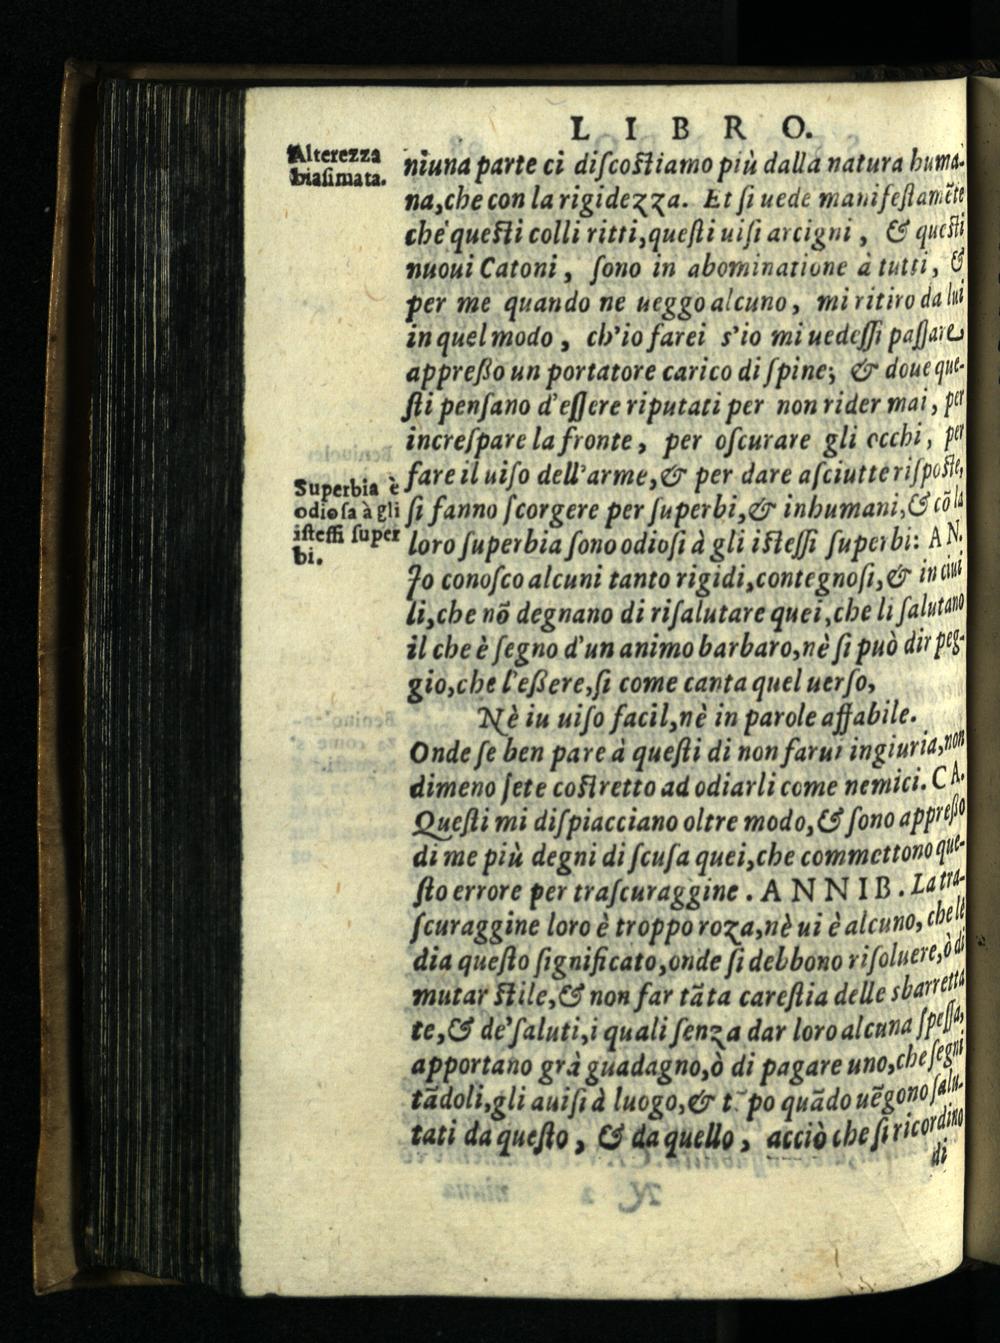 LIBRO.
Alterezza
biasimata.
niuna parte ci discostiamo più dalla natura huma-
na, che con la rigidezza. Et si uede manifestamẽte
che questi colli ritti, questi uisi arcigni, & questi
nuoui Catoni, sono in abominatione à tutti, &
per me quando ne ueggo alcuno, mi ritiro da lui
in quel modo, ch'io farei s'io mi uedessi passare
appresso un portatore carico di spine; & doue que-
sti pensano d'essere riputati per non rider mai, per
increspare la fronte, per oscurare gli occhi, per
fare il uiso dell'arme, & per dare asciutte risposte,
Superbia è
odiosa à gli
istessi super
bi.
si fanno scorgere per superbi, & inhumani, & cõ la
loro superbia sono odiosi à gli istessi superbi: AN.
Io conosco alcuni tanto rigidi, contegnosi, & inciui
li, che nõ degnano di risalutare quei, che li salutano
il che è segno d'un animo barbaro, nè si può dir peg-
gio, che l'essere, si come canta quel uerso,
Nè iu uiso facil, nè in parole affabile.
Onde se ben pare à questi di non farui ingiuria, non
dimeno sete costretto ad odiarli come nemici. CA.
Questi mi dispiacciano oltre modo, & sono appresso
di me più degni di scusa quei, che commettono que-
sto errore per trascuraggine. ANNIB. La tra-
scuraggine loro è troppo roza, nè ui è alcuno, che le
dia questo significato, onde si debbono risoluere, ò di
mutar stile, & non far tãta carestia delle sbarretta
te, & de' saluti, i quali senza dar loro alcuna spessa,
apportano grà guadagno, ò di pagare uno, che segni
tãdoli, gli auisi à luogo, & t~po quãdo uẽgono salu-
tati da questo, & da quello, acciò che si ricordino
di